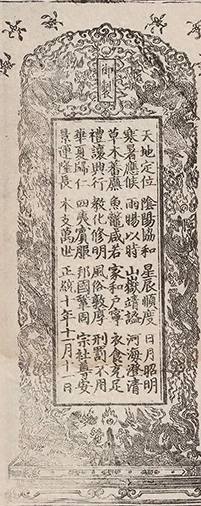 御製
天地定位 陰陽協和 星辰順度 日月昭明
寒暑應候 雨暘以時 山嶽靖謐 河海澄清
草木蕃廡 魚龞咸若 家和户寧 衣食充足
禮讓興行 敎化修明 風俗敦厚 刑罰不用
華夏歸仁 四夷賓服 邦國鞏固 宗社尊安
景運隆長 本支萬世 正統十年十一月十一日